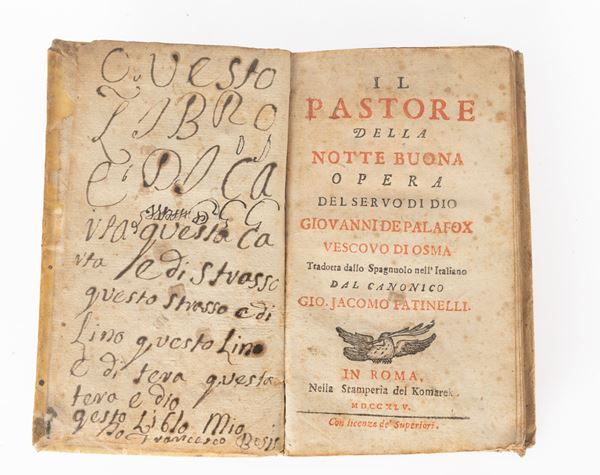 Questo
LIBRO
E DI Ca
rta questa Ca
rta e di strasso
questo strasso e di
Lino questo Lino
e di tera questa
tera e dio
qesto Liblo Mio
Io Francesco
IL
PASTORE
DELLA
NOTTE BUONA
OPERA
DEL SERVO DI DIO
GIOVANNI DE PALAFOX
VESCOVO DI OSMA
Tradotta dallo Spagnuolo nell' Italiano
DAL CANONICO
GIO. JACOMO FATINELLI.
IN ROMA,
Nella Stamperia del Komarek.
MDCCXLV.
Con licenza de' Superiori.